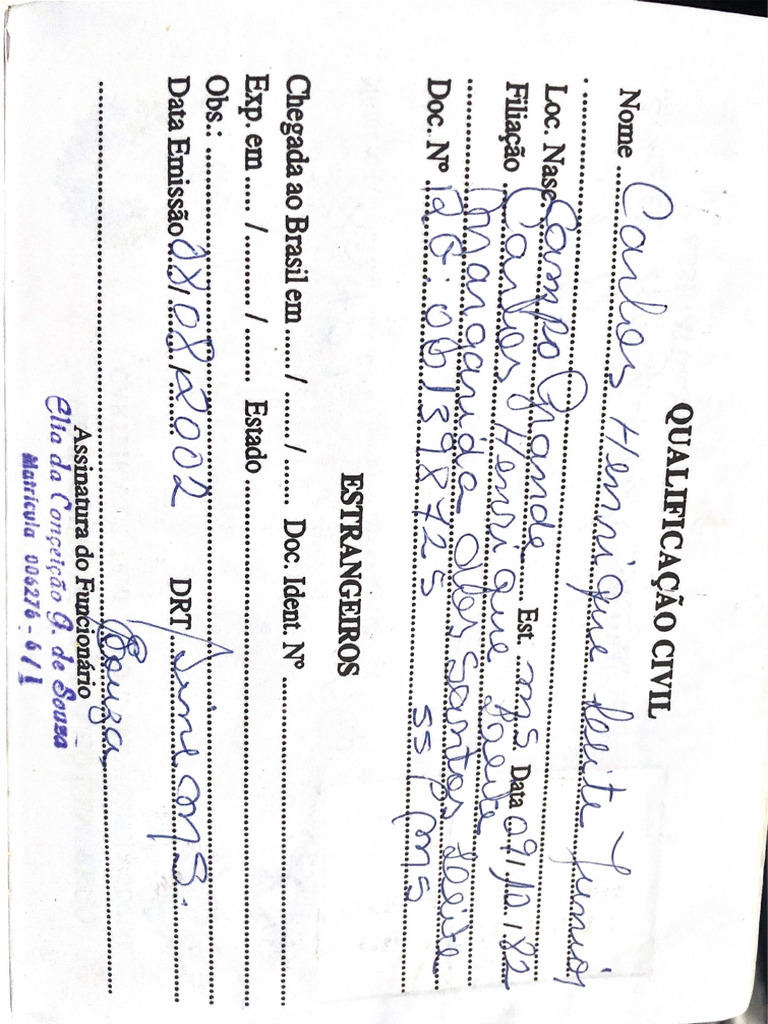 QUALIFICAÇÃO CIVIL
Nome Carlos Henrique Leite Junior
Loc. Nasc. Campo Grande Est. MS. Data 09/10/82
Filiação Carlos Henrique Leite
Margarida dos Santos Leite
Doc. Nº RG: 001398725 SSP/MS
ESTRANGEIROS
Chegada ao Brasil em ...... / ...... / ...... Doc. Ident. Nº
Exp. em ...... / ...... / ...... Estado
Obs.:
Data Emissão 08/08/2002 DRT/Sine MS.
Souza
Assinatura do Funcionário
Elia da Conceição G. de Souza
Matrícula 006276-6/1